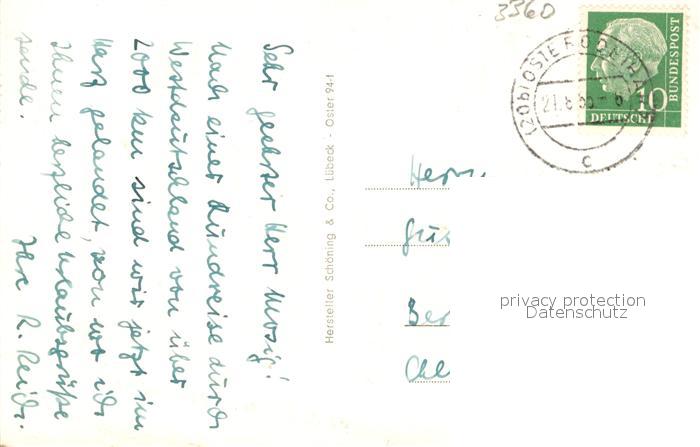 Sehr geehrter Herr Mosig!
Nach einer Rundreise durch
Westdeutschland von über
2000 km sind wir jetzt im
Harz gelandet, von wo ich
Ihnen herzliche Urlaubsgrüße
sende.
Ihre R. Reich.
Hersteller Schöning & Co., Lübeck - Oster 94-1
3360
(20b) OSTERODE (HARZ)
21.8.
c
10
DEUTSCHE
BUNDESPOST
Herrn
Ber
privacy protection
Datenschutz